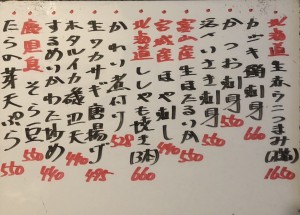 北海道 生本ウニつまみ(1舟) 1650
カサゴ 刺身 660
かつお刺身 550
活〆いさき刺身 550
富山産 生ほたるいか 550
宮城産 生ほや刺し 440
北海道 ししゃも焼き(3本) 660
かれい煮付け 528
生ワカサギ唐揚げ 495
ホタルイカ磯辺天 440
するめいかわた炒め 440
鹿児島 そら豆 550
たらの芽天ぷら 550